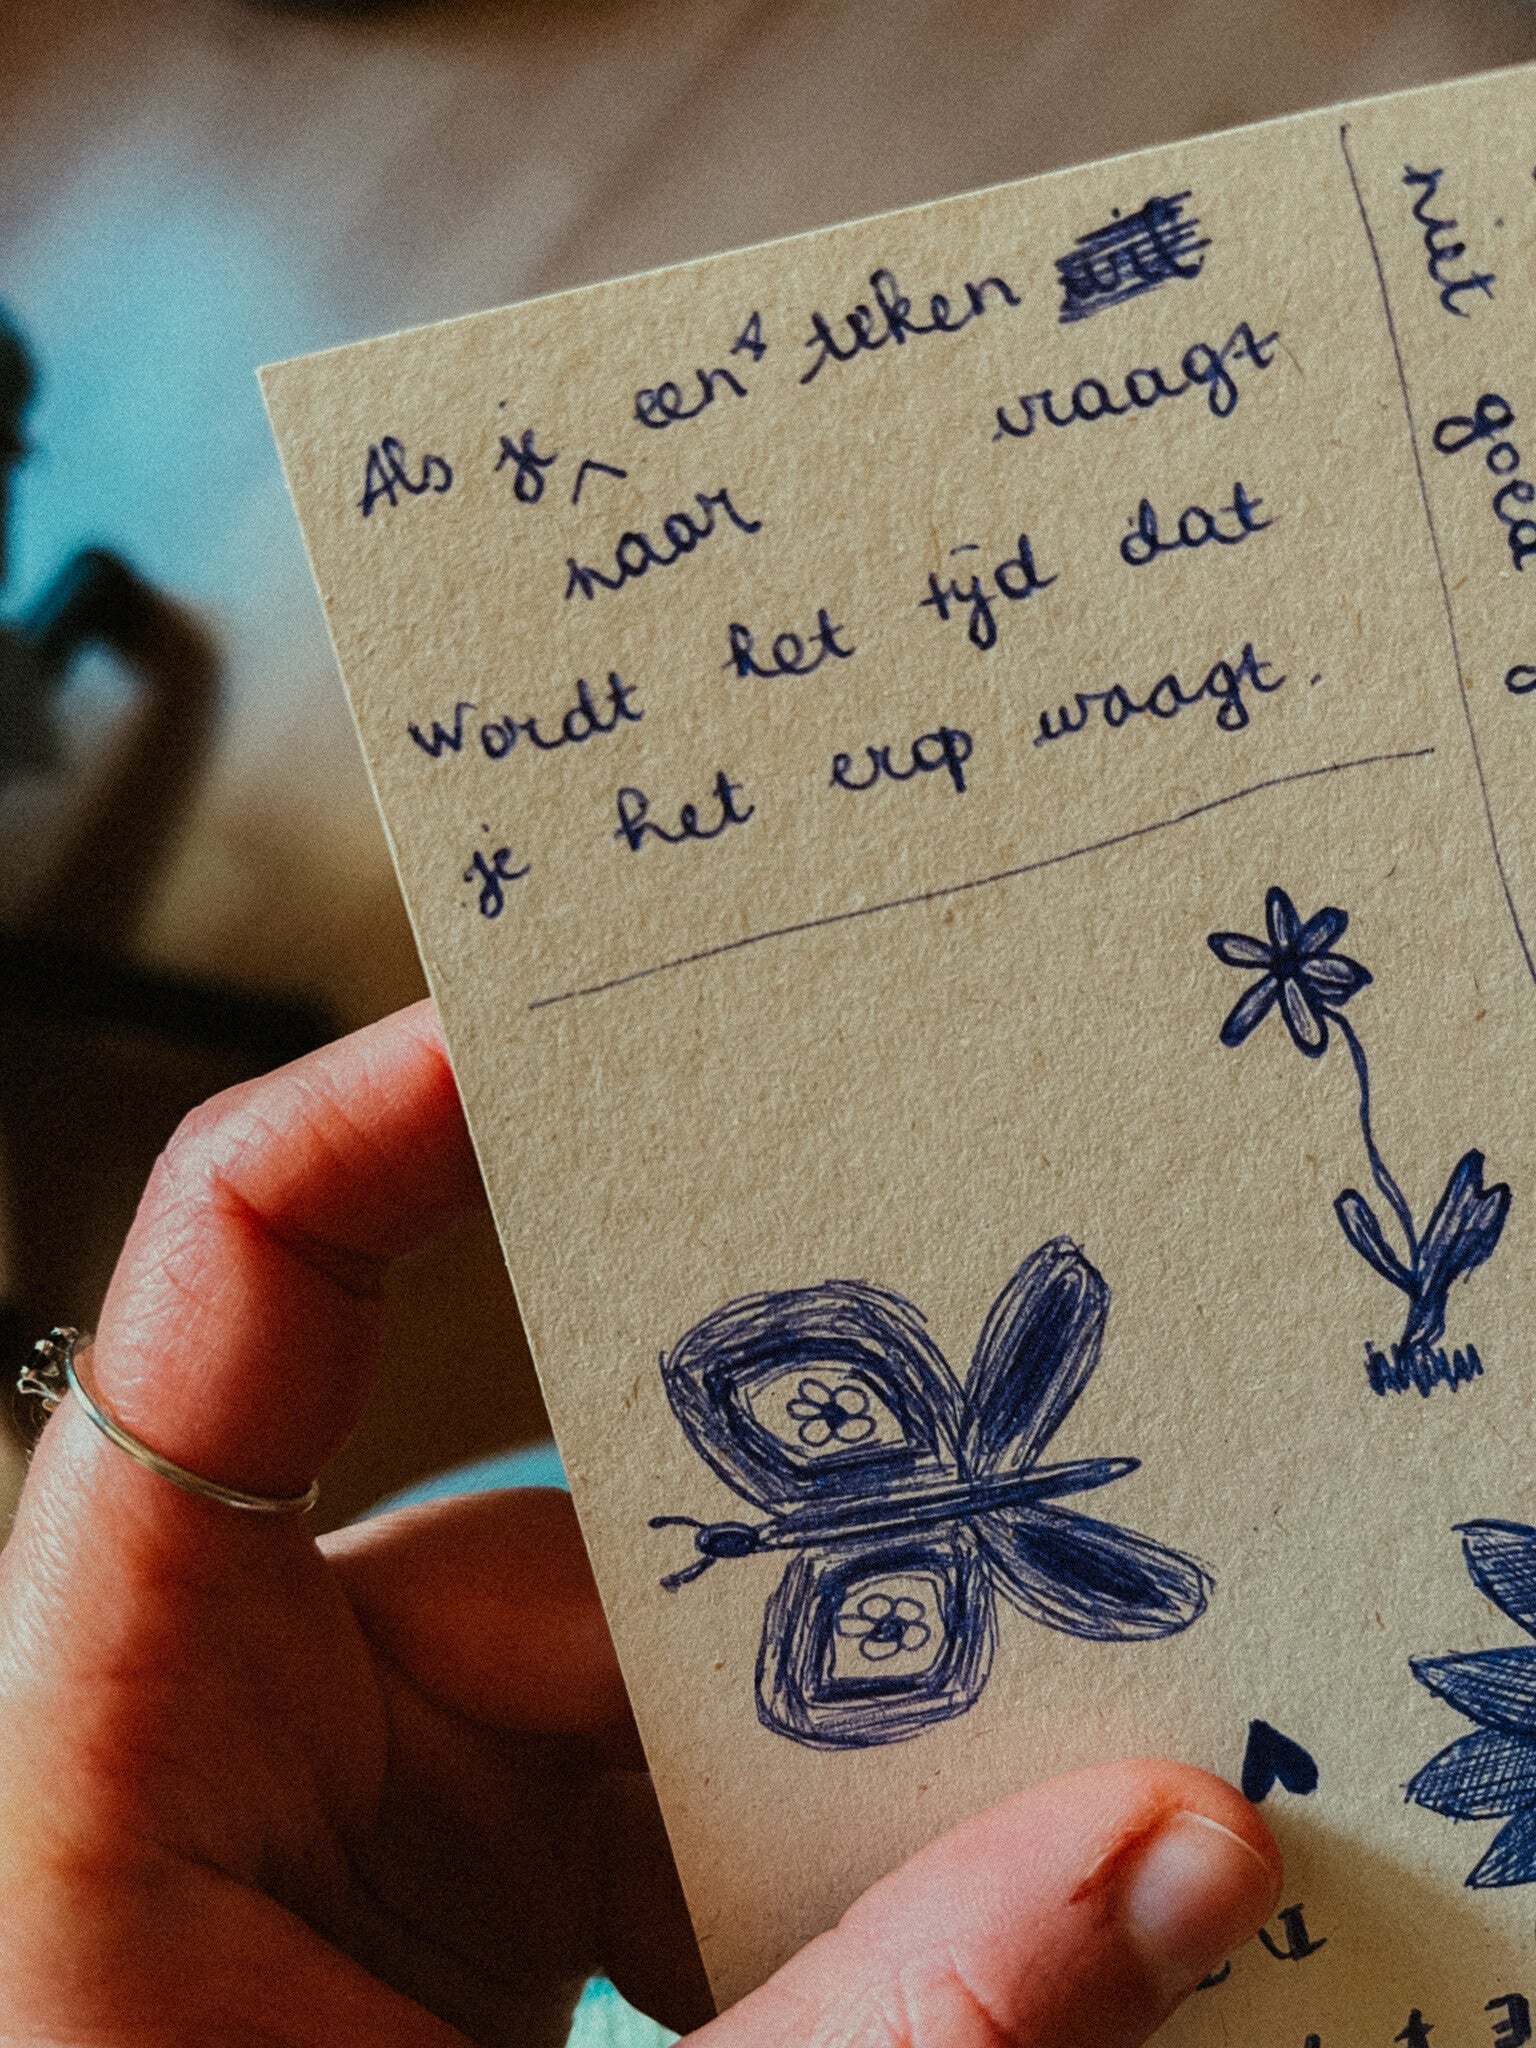 Als je een teken
naar vraagt
wordt het tijd dat
je het erop waagt.
niet
goed